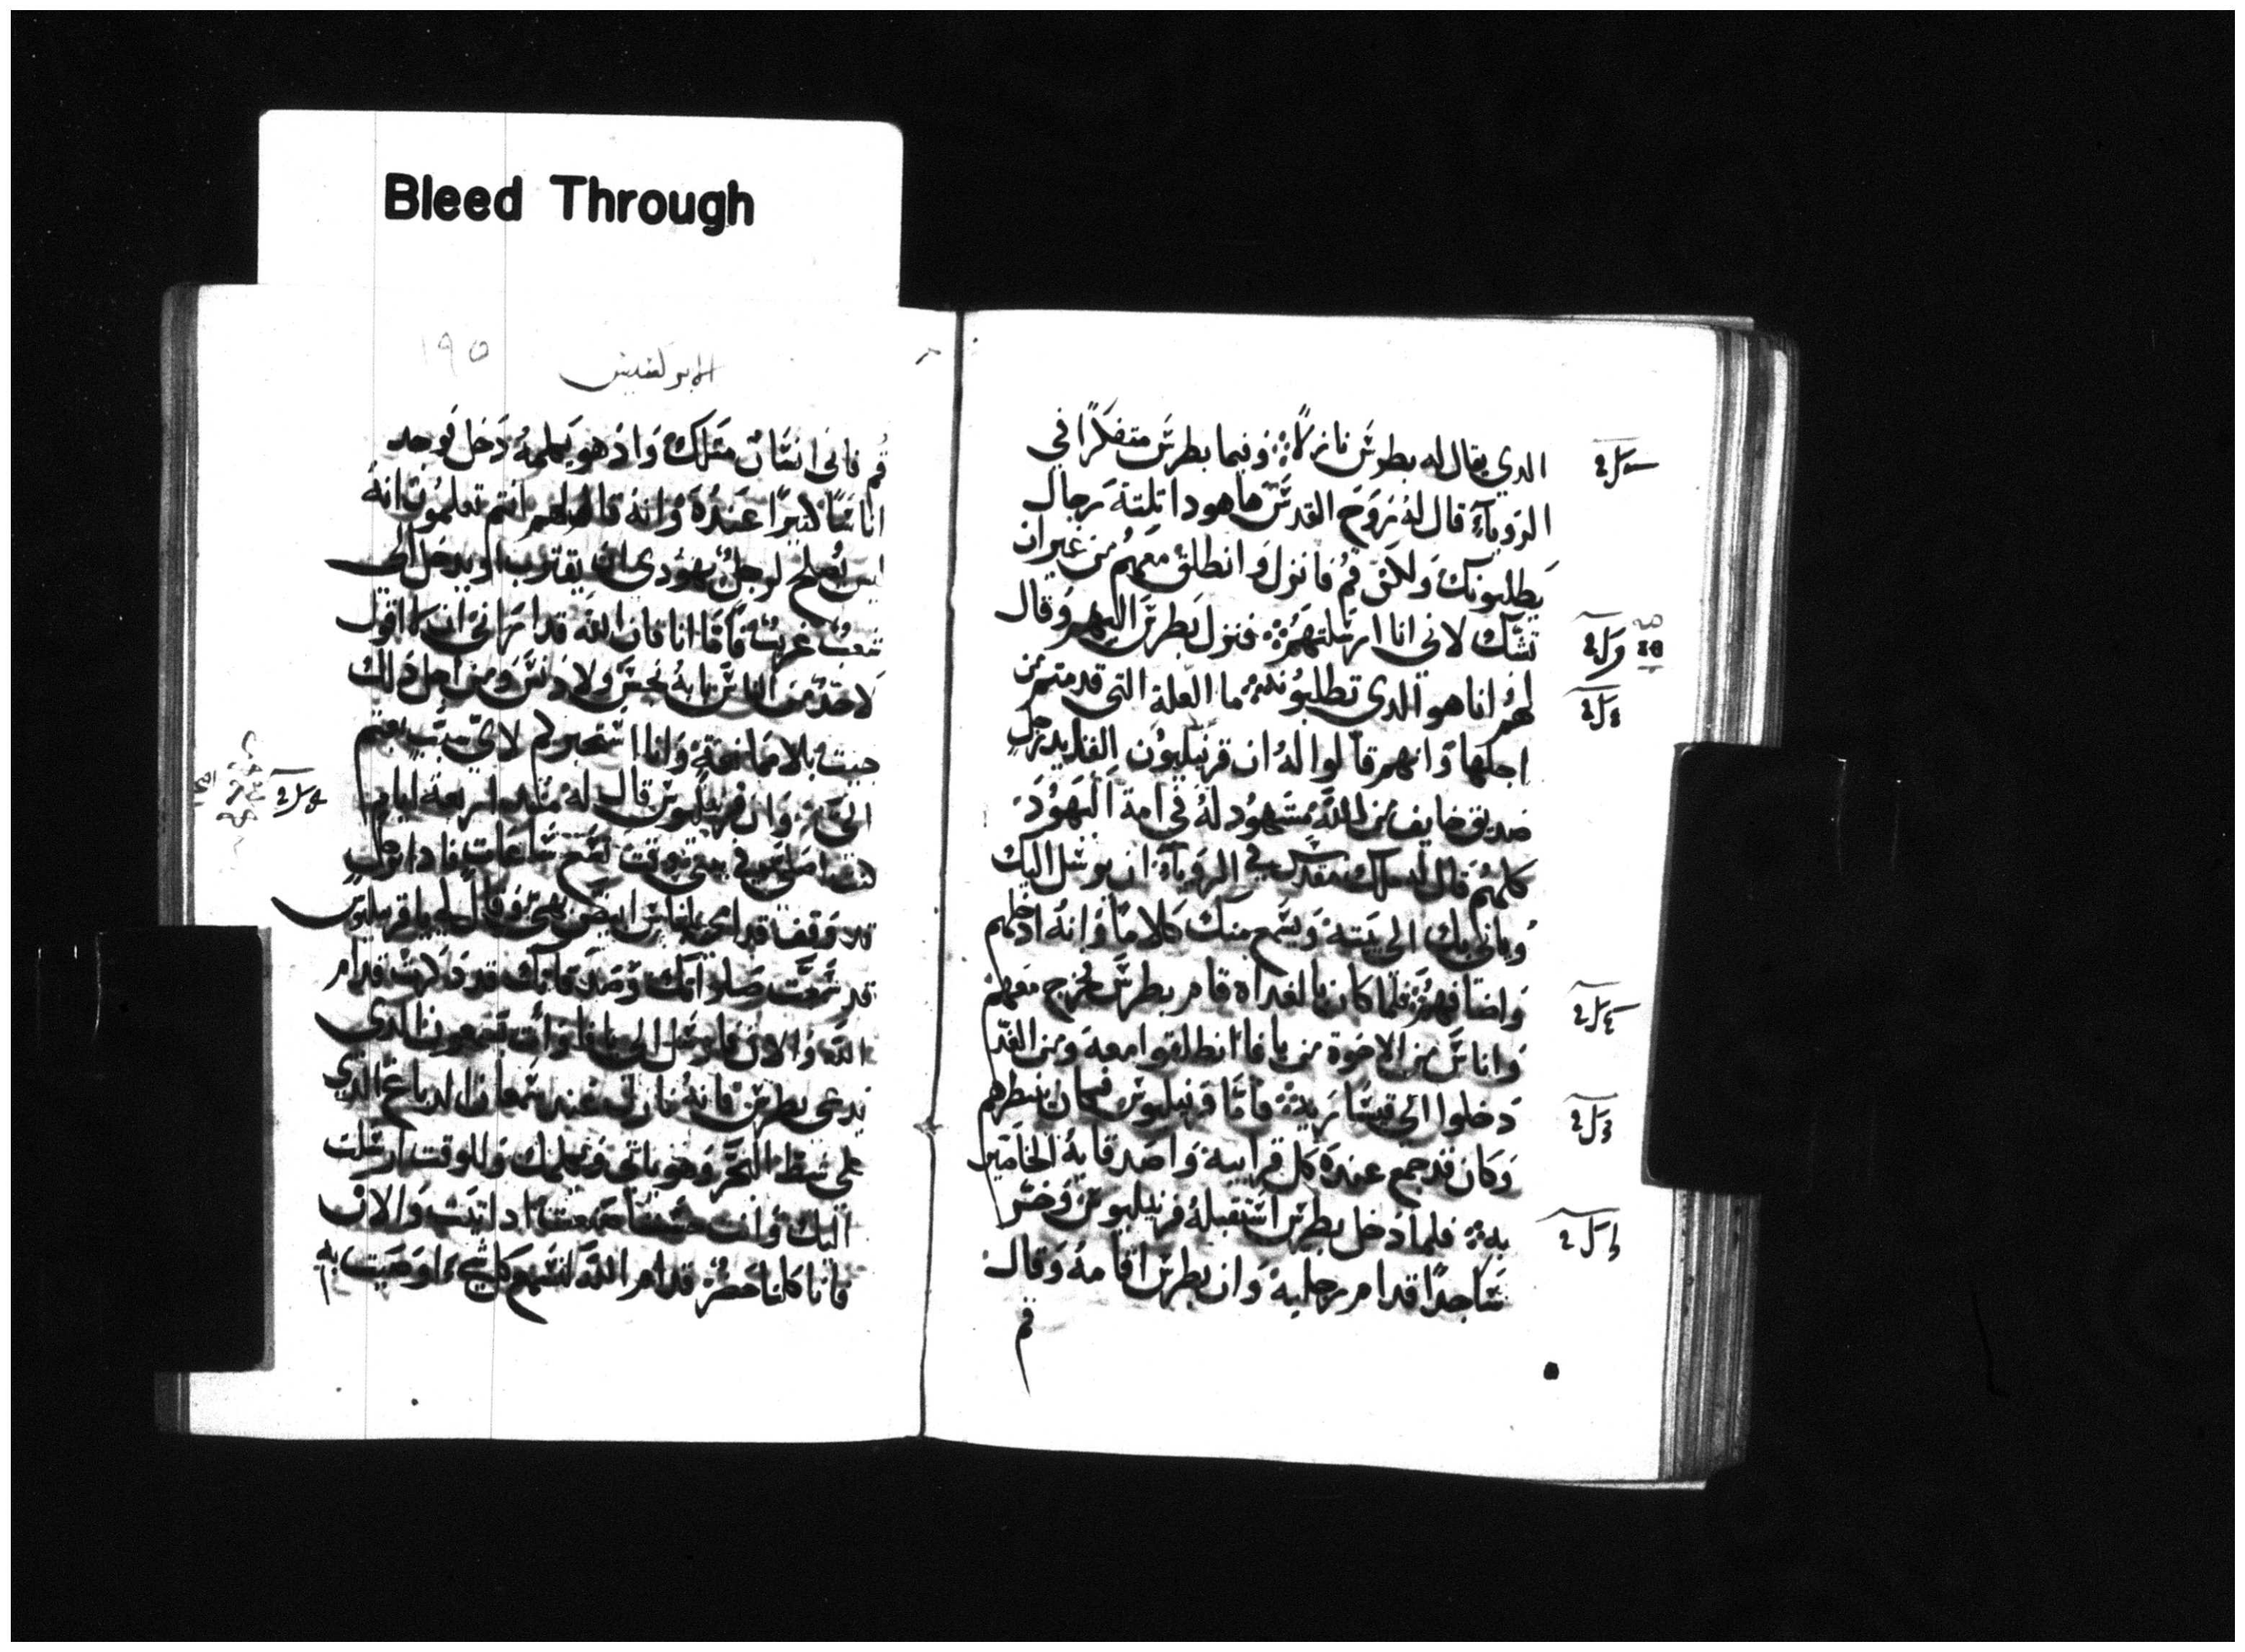 Bleed Through
الدي يقال له بطرس نازلاً ۞ وفيما بطرس متفكرًا في
الروياء قال له روح القدس ها هودا تلتة رجال
يطلبونك ولاكن قم فانزل وانطلق معهم من غير ان
تشك لاني انا ارسلتهم ۞ فنزل بطرس اليهم وقال
لهم انا هو الدي تطلبونه ما العلة التي قدمتم من
اجلها وانهم قالوا له ان قرنيليون القايد رجل
صديق خايف من الله مشهود له في امة اليهود
كلهم قال له ملك مقدس في الروياء ان يرسل اليك
وياتي بك الى بيته ويسمع منك كلامًا وانه ادخلهم
واضافهم ۞ فلما كان بالغداه قام بطرس فخرج معهم
واناس من الاخوة من يافا انطلقوا معه ومن الغد
دخلوا الى قيسارية ۞ فاما قرنيليوس فكان ينتظرهم
وكان قد جمع عنده كل قرابيه واصدقايه الخاصين
به ۞ فلما دخل بطرس استقبله قرنيليوس وخر
ساجدًا قدام رجليه وان بطرس اقامه وقال
قم
١٩٥
الابركسيس
قم فاني انسان متلك واد هو يكلمه دخل فوجد
اناسًا كتيرًا عنده وانه قال لهم انتم تعلمون انه
ليس يصلح لرجل يهودي ان يقترب او يدخل الى
شعب غريب فاما انا فان الله قد اراني ان لا اقول
لاحد من الناس بانه نجس ولا دنس ومن اجل دلك
جيت بلا ممانعة وانا استخبركم لاي سبب بعتم
الي ۞ وان قرنيليوس قال له مند اربعة ايام
كنت اصلي في بيتي وقت تسع ساعات فادا برجل
قد وقف قدامي بلباس ابيض بهي وقال لي يا قرنيليوس
قد سمعت صلواتك وصدقاتك قد دكرت قدام
الله والان فارسل الى يافا وات سمعون الدي
يدعى بطرس فانه نازل عند سمعان الدباغ الدي
على شط البحر وهو ياتي ويكلمك وللوقت ارسلت
اليك وانت حسنًا صنعت اد اتيت والان
فانا كلنا حضر قدام الله لنسمع كل شيء اوصيت به